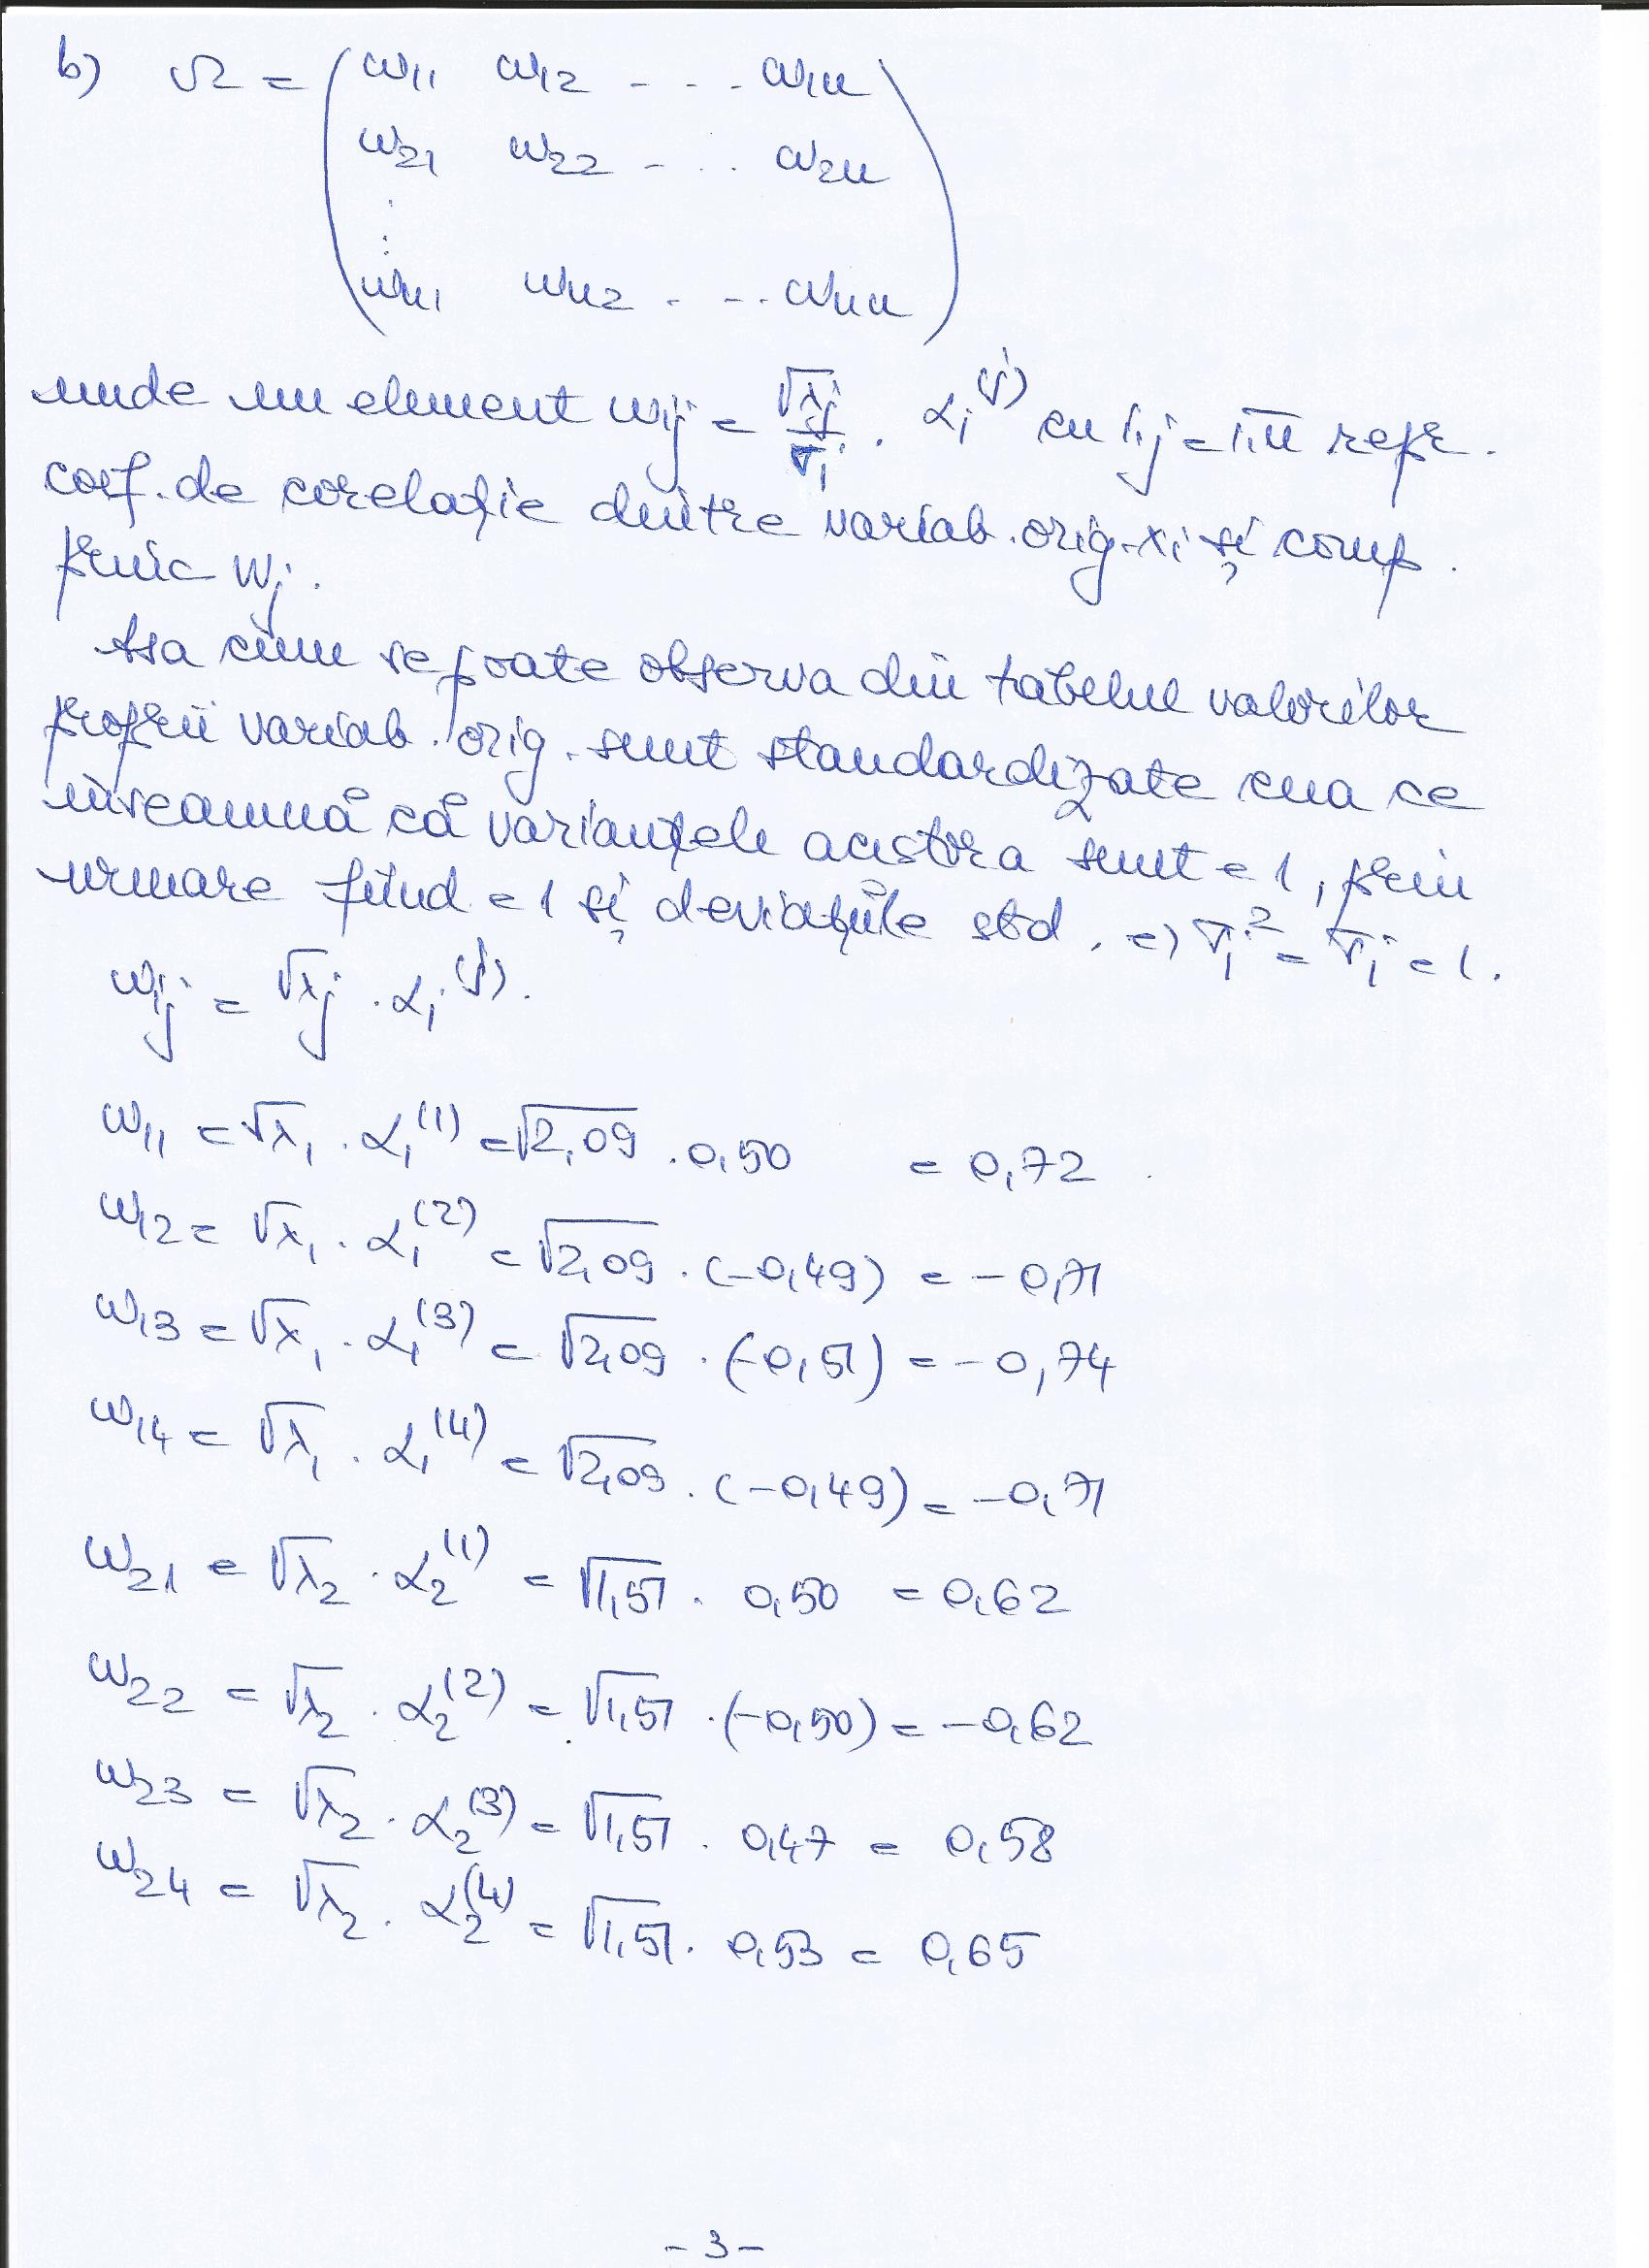 b) Ω = ( ω11 ω12 - - - ω1n
ω21 ω22 - . . ω2n
:
ωn1 ωn2 . - - . ωnn )
unde un element ωij = √λj / σi . αi(j) cu i,j = 1,n repr.
coef. de corelație dintre variab. orig. xi și comp.
princ Wj.
Asa cum se poate observa din tabelul valorilor
proprii variab. orig. sunt standardizate ceea ce
inseamnă că varianțele acestora sunt = 1, prin
urmare fiind = 1 și deviațiile std. => σi² = σi = 1.
ωij = √λj . αi(j).
ω11 = √λ1 . α1(1) = √2,09 . 0,50 = 0,72
ω12 = √λ1 . α1(2) = √2,09 . (-0,49) = -0,71
ω13 = √λ1 . α1(3) = √2,09 . (-0,51) = -0,74
ω14 = √λ1 . α1(4) = √2,09 . (-0,49) = -0,71
ω21 = √λ2 . α2(1) = √1,51 . 0,50 = 0,62
ω22 = √λ2 . α2(2) = √1,51 . (-0,50) = -0,62
ω23 = √λ2 . α2(3) = √1,51 . 0,47 = 0,58
ω24 = √λ2 . α2(4) = √1,51 . 0,53 = 0,65
- 3 -